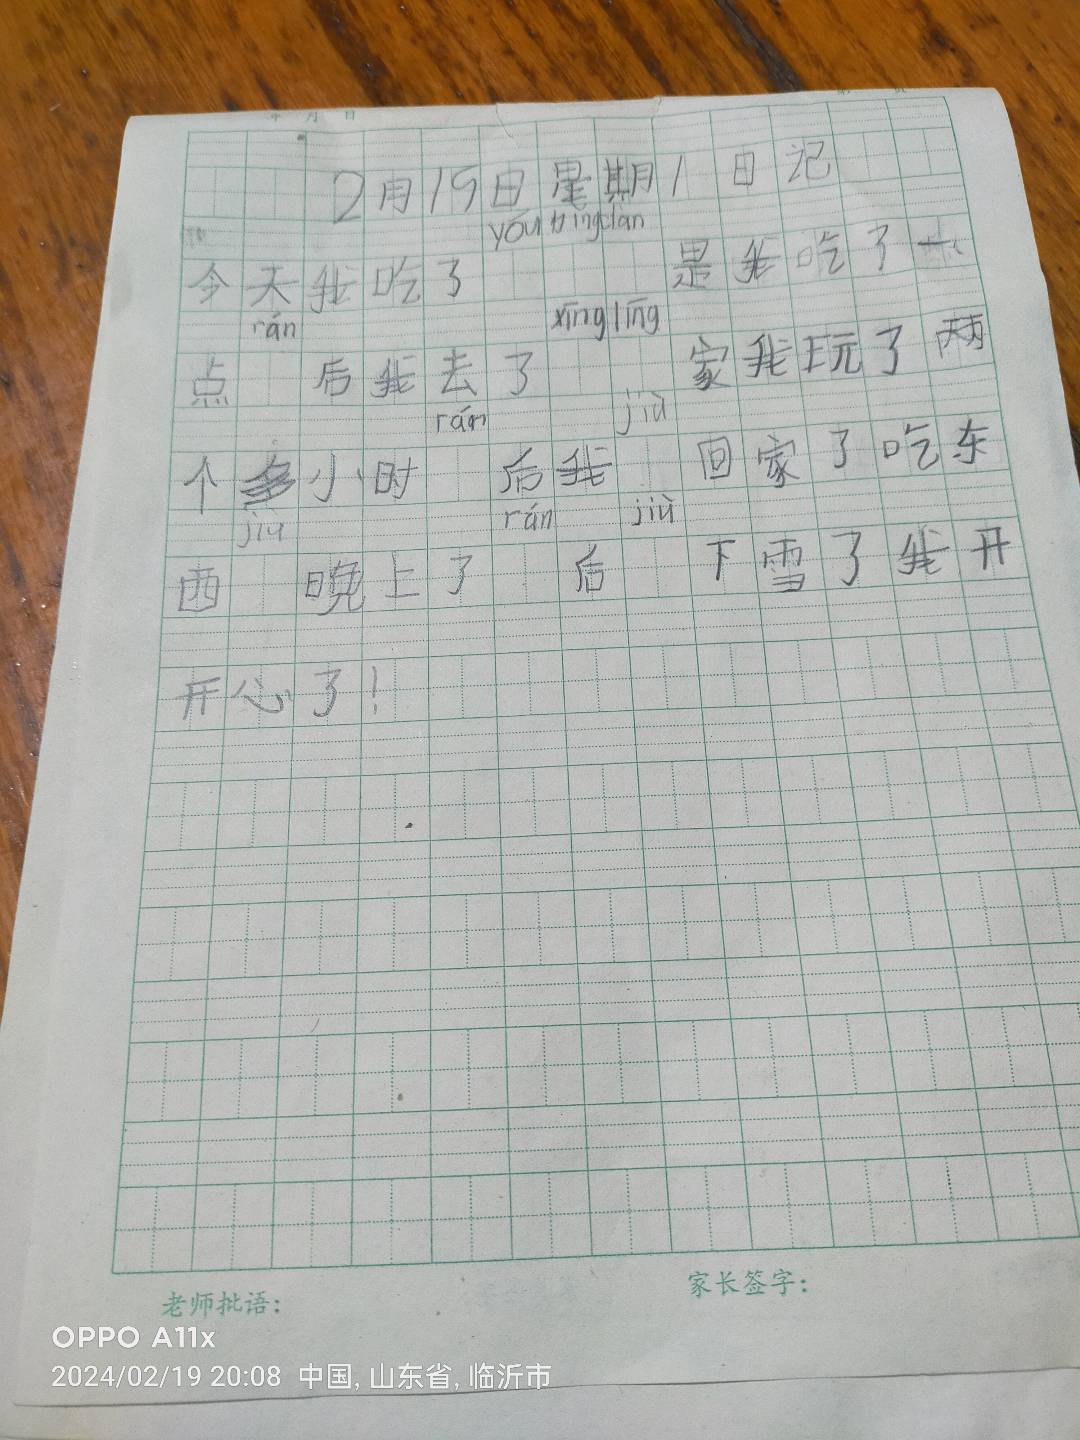 年 月 日
2月19日星期1日记
yóu bǐng dàn
今天我吃了 是我吃了一
rán xīng līng
点 后我去了 家我玩了两
rán jiù
个多小时 后我 回家了吃东
jiù rán jiù
西 晚上了 后 下雪了我开
开心了!
老师批语:
家长签字:
OPPO A11x
2024/02/19 20:08 中国, 山东省, 临沂市